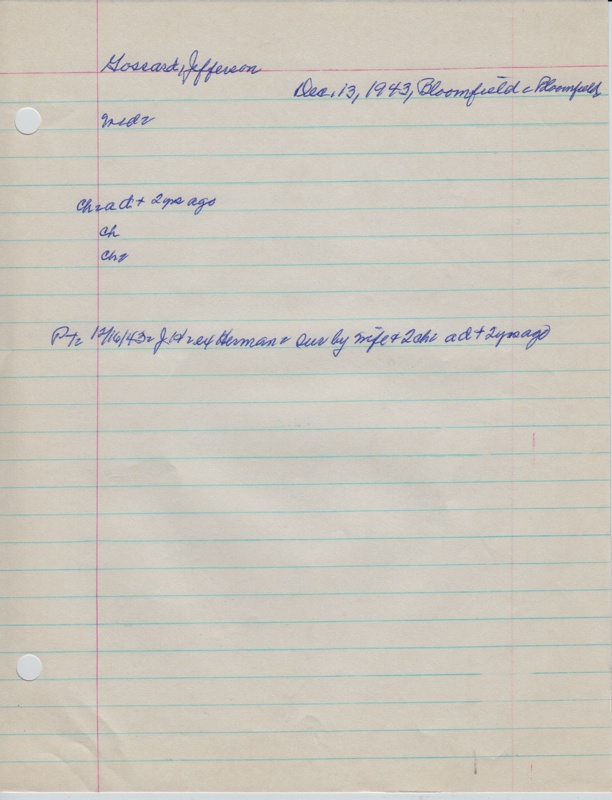 Goscard, Jefferson
Dec. 13, 1943, Bloomfield - Bloomfield
md=
ch=a d + 2yrs ago
ch
ch=
Pt= 12/16/43= J. H= Herman= sur by wife + 2ch= a d + 2yrs ago